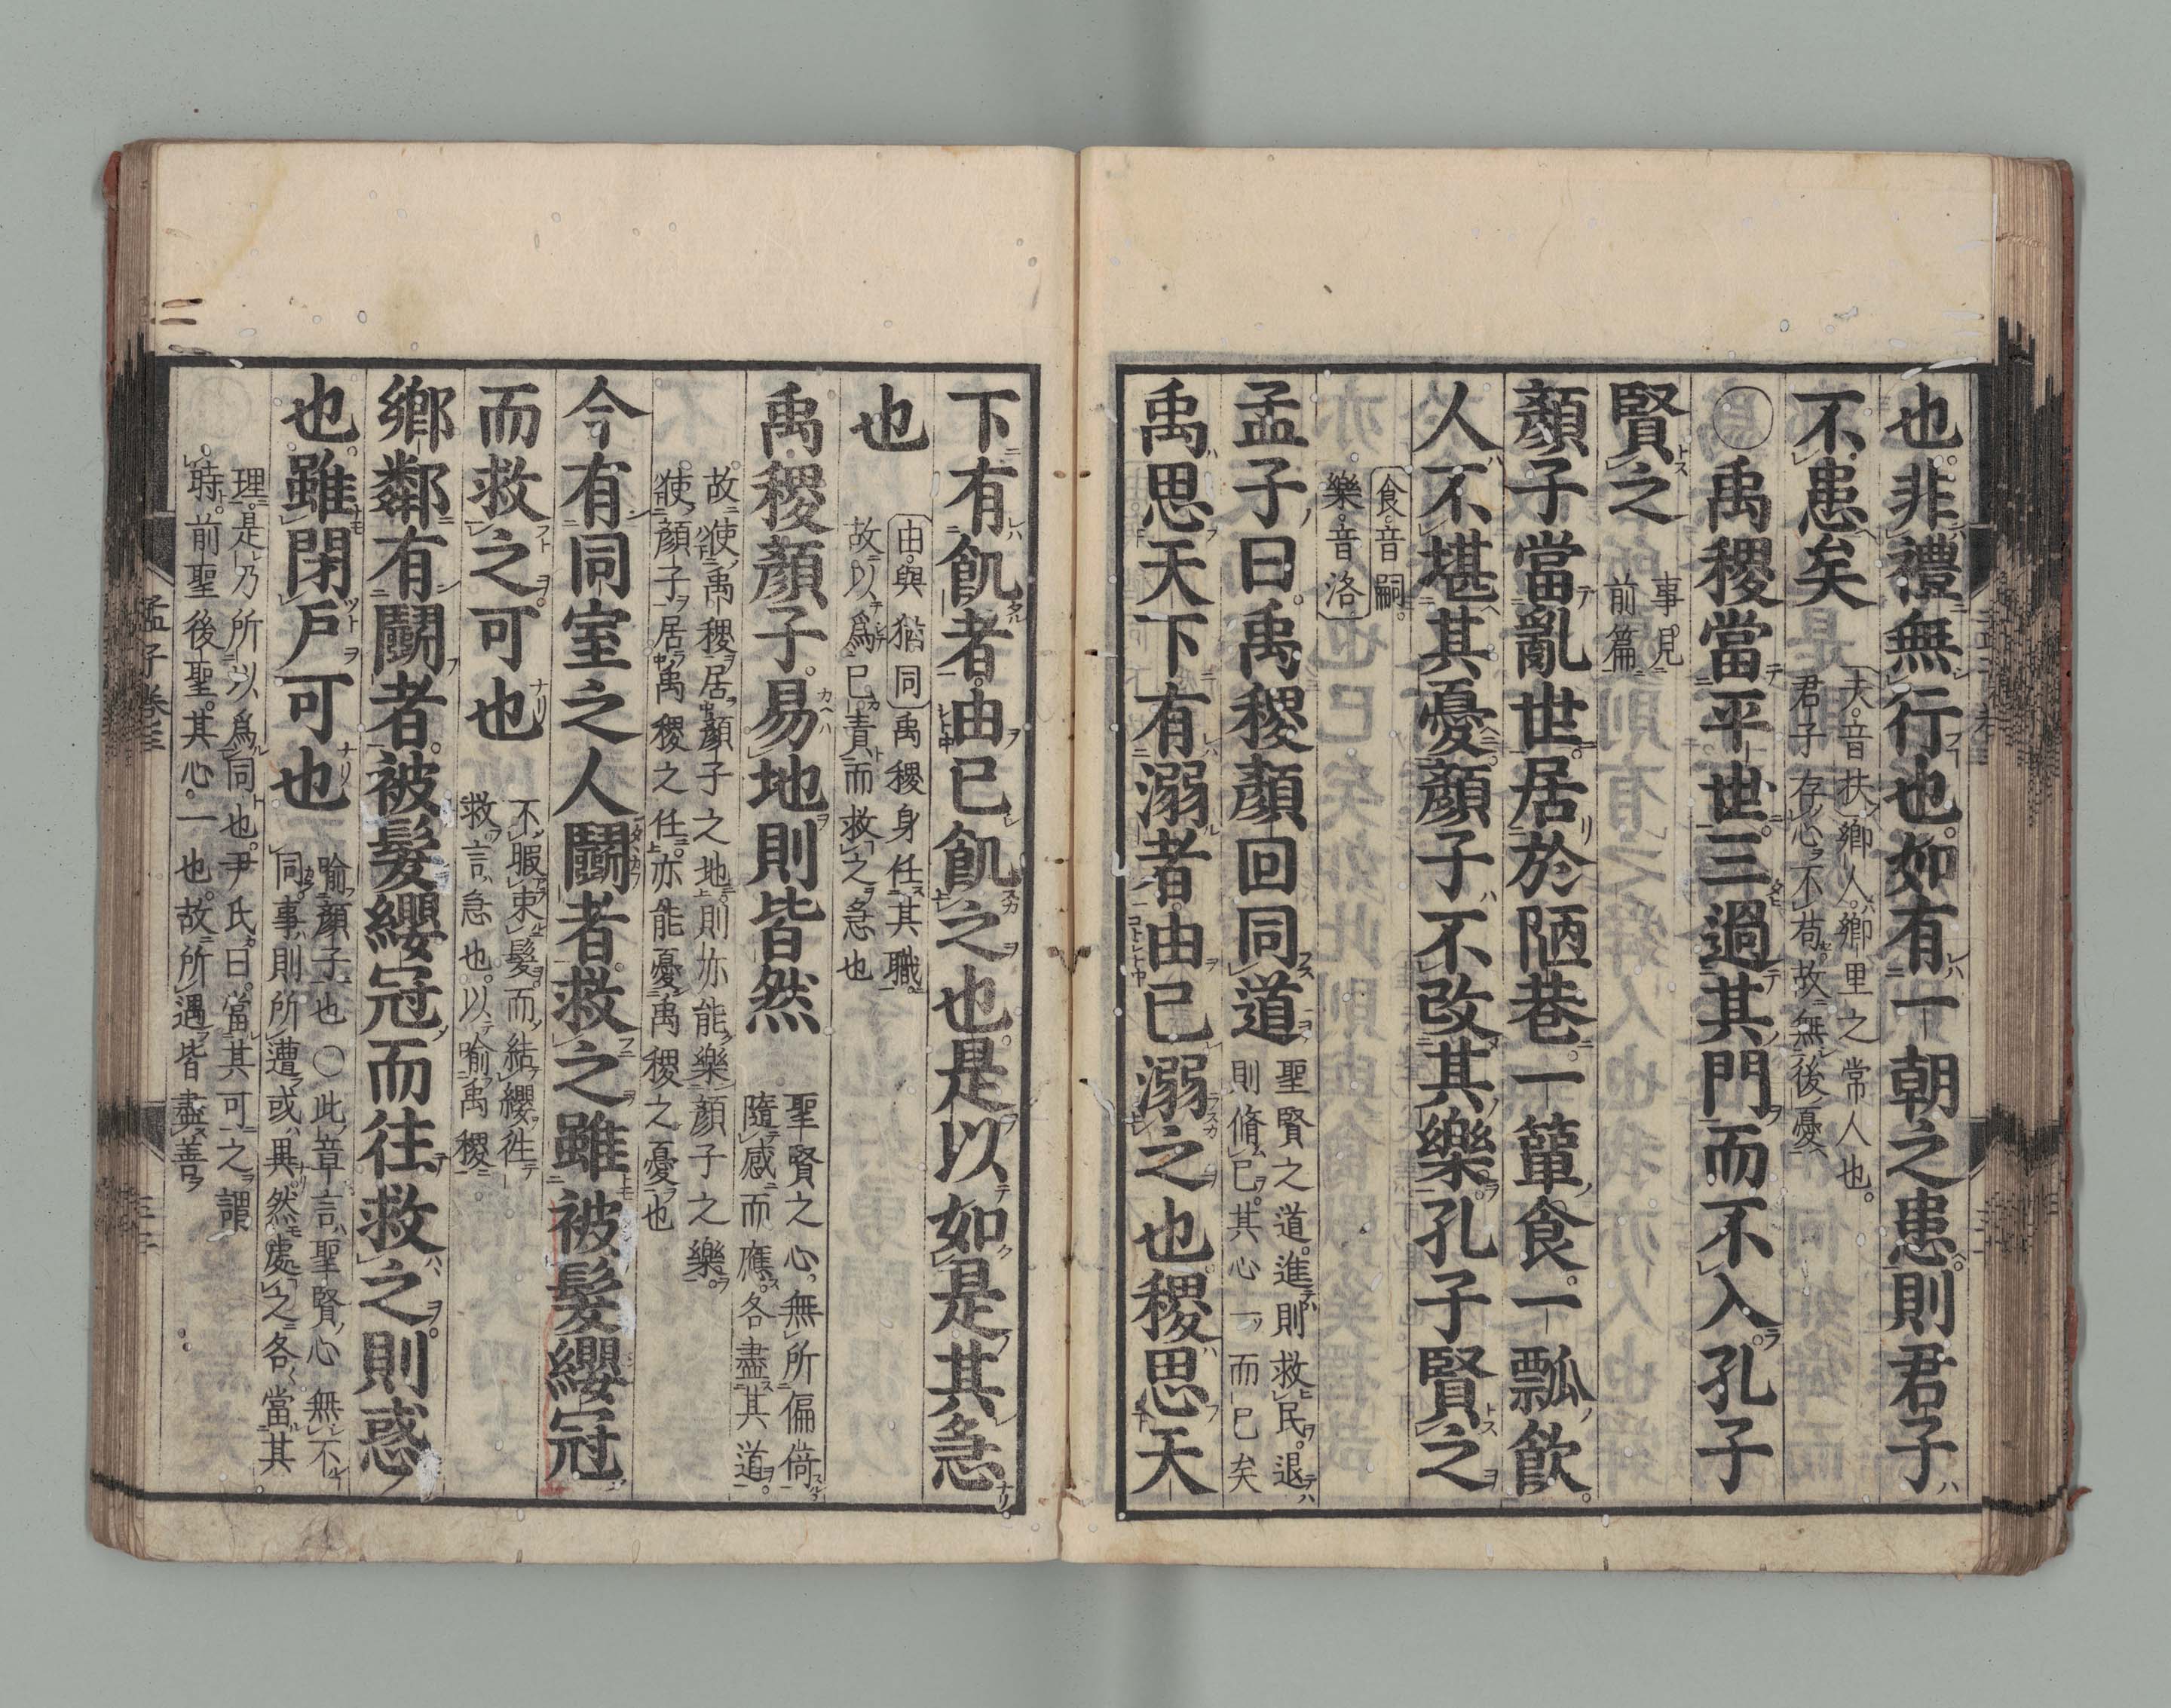 也非禮無行也如有一朝之患則君子
不患矣
夫音扶鄉人鄉里之常人也
君子存心不苟故無後憂
〇禹稷當平世三過其門而不入孔子
賢之
事見
前篇
顏子當亂世居於陋巷一簞食一瓢飲
人不堪其憂顏子不改其樂孔子賢之
食音嗣
樂音洛
孟子曰禹稷顏回同道
聖賢之道進則救民退
則脩已其心一而已矣
禹思天下有溺者由已溺之也稷思天
下有飢者由已飢之也是以如是其急
也
由與猶同禹稷身任其職
故以爲已責而救之急也
禹稷顏子易地則皆然
聖賢之心無所偏倚
隨感而應各盡其道
故使禹稷居顏子之地則亦能樂顏子之樂
使顏子居禹稷之任亦能憂禹稷之憂也
今有同室之人鬭者救之雖被髮纓冠
而救之可也
不暇束髮而結纓徃
救言急也以喻禹稷
鄉鄰有鬭者被髮纓冠而往救之則惑
也雖閉戶可也
喻顏子也〇此章言聖賢心無不
同事則所遭或異然處之各當其
理是乃所以爲同也尹氏曰當其可之謂
時前聖後聖其心一也故所遇皆盡善
孟子卷三